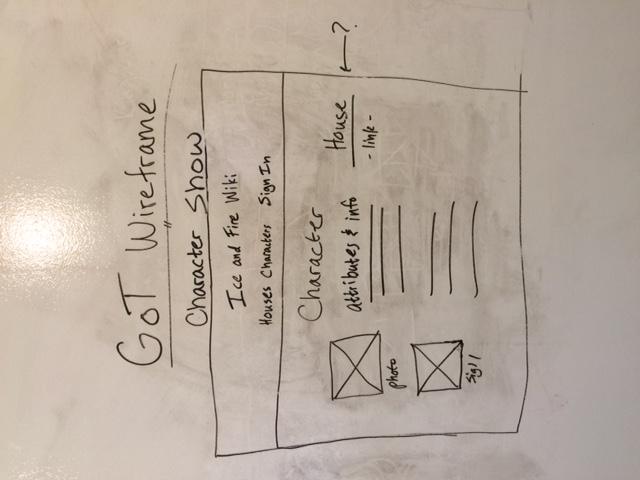 GoT Wireframe
Character Show
Ice and Fire Wiki
Houses Characters Sign In
Character
attributes & info
House
- link -
?
photo
sigil